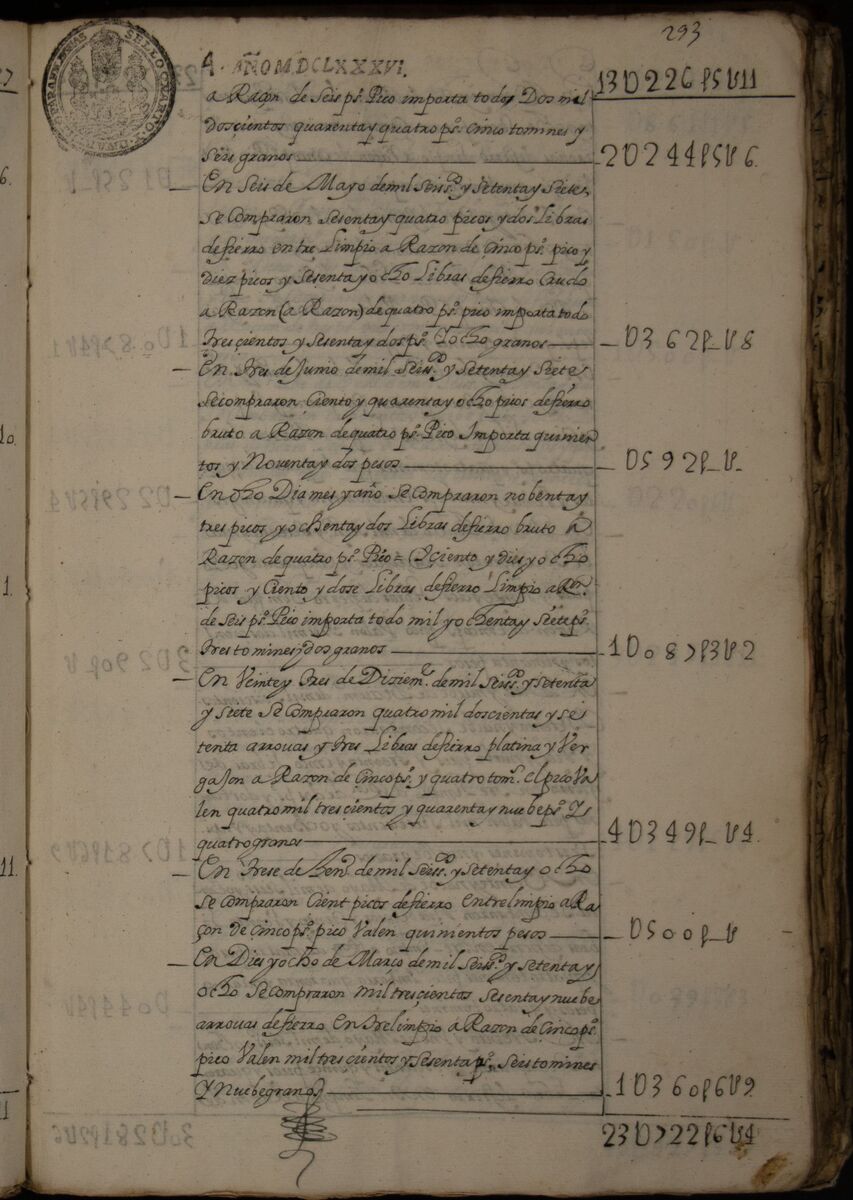 293
SELLO QUARTO
A. AÑO M DCLXXXVI.
13U226 p5 U11
a Raçon de Seis ps. Pico importa todos Dos mil
dosçientos quarenta y quatro ps. cinco tomines y
Seis granos 2U244 p5 U6.
En Seis de Mayo de mil Seiss. y Setenta y Siete,
Se Compraron Sesenta y quatro picos y dos Libras
de fierro entre Limpio a Razon de Cinco ps. pico y
Diez picos y Sesenta y ocho Libras de fierro Crudo
a Razon (a Razon) de quatro ps. pico importa todo
tresçientos y sesenta y dos ps. Y ocho granos U362 p_ U8
En tres de Junio de mil Seiss. y Setenta y Siete
Se compraron Çiento y quarenta y ocho picos de fierro
bruto a Razon de quatro ps. Pico Importa quinien
tos y Noventa y dos pesos U592 p_ U_
En dho Dia mes y año Se Compraron nobenta y
tres picos y ochenta y dos Libras de fierro bruto a
Razon de quatro ps. Pico = (Y çiento y dies y ocho
picos y Ciento y dose Libras de fierro Limpio a Ron.
de Seis ps. Pico importa todo mil y ochenta y Siete ps.
tres tomines y dos granos 1U087 p3 U2
En Veinte y tres de Diziem. de mil Seiss. y Setenta
y Siete Se Compraron quatro mil doscientas y se
tenta arrouas y tres Libras de fierro platina y Ver
gajon a Razon de Çinco ps. y quatro tom. el pico Va
len quatro mil tresçientos y quarenta y nuebe ps. Y
quatro granos 4U349 p_ U4.
En trese de Hen. de mil Seiss. y Setenta y ocho
Se Compraron Cient picos de fierro Entrelimpio a Ra
çon de Cinco ps. pico Valen quinientos pesos U500 p_ U
En Dies y ocho de Março de mil Seiss. y Setenta y
ocho Se Compraron Mil tresçientos Sesenta y nuebe
arrouas de fierro Entrelimpio a Razon de Cinco ps.
pico Valen mil tresçientos y Sesenta ps. Seis tomines
Y Nuebe granos 1U360 p6 U9
23U722 p6 U4